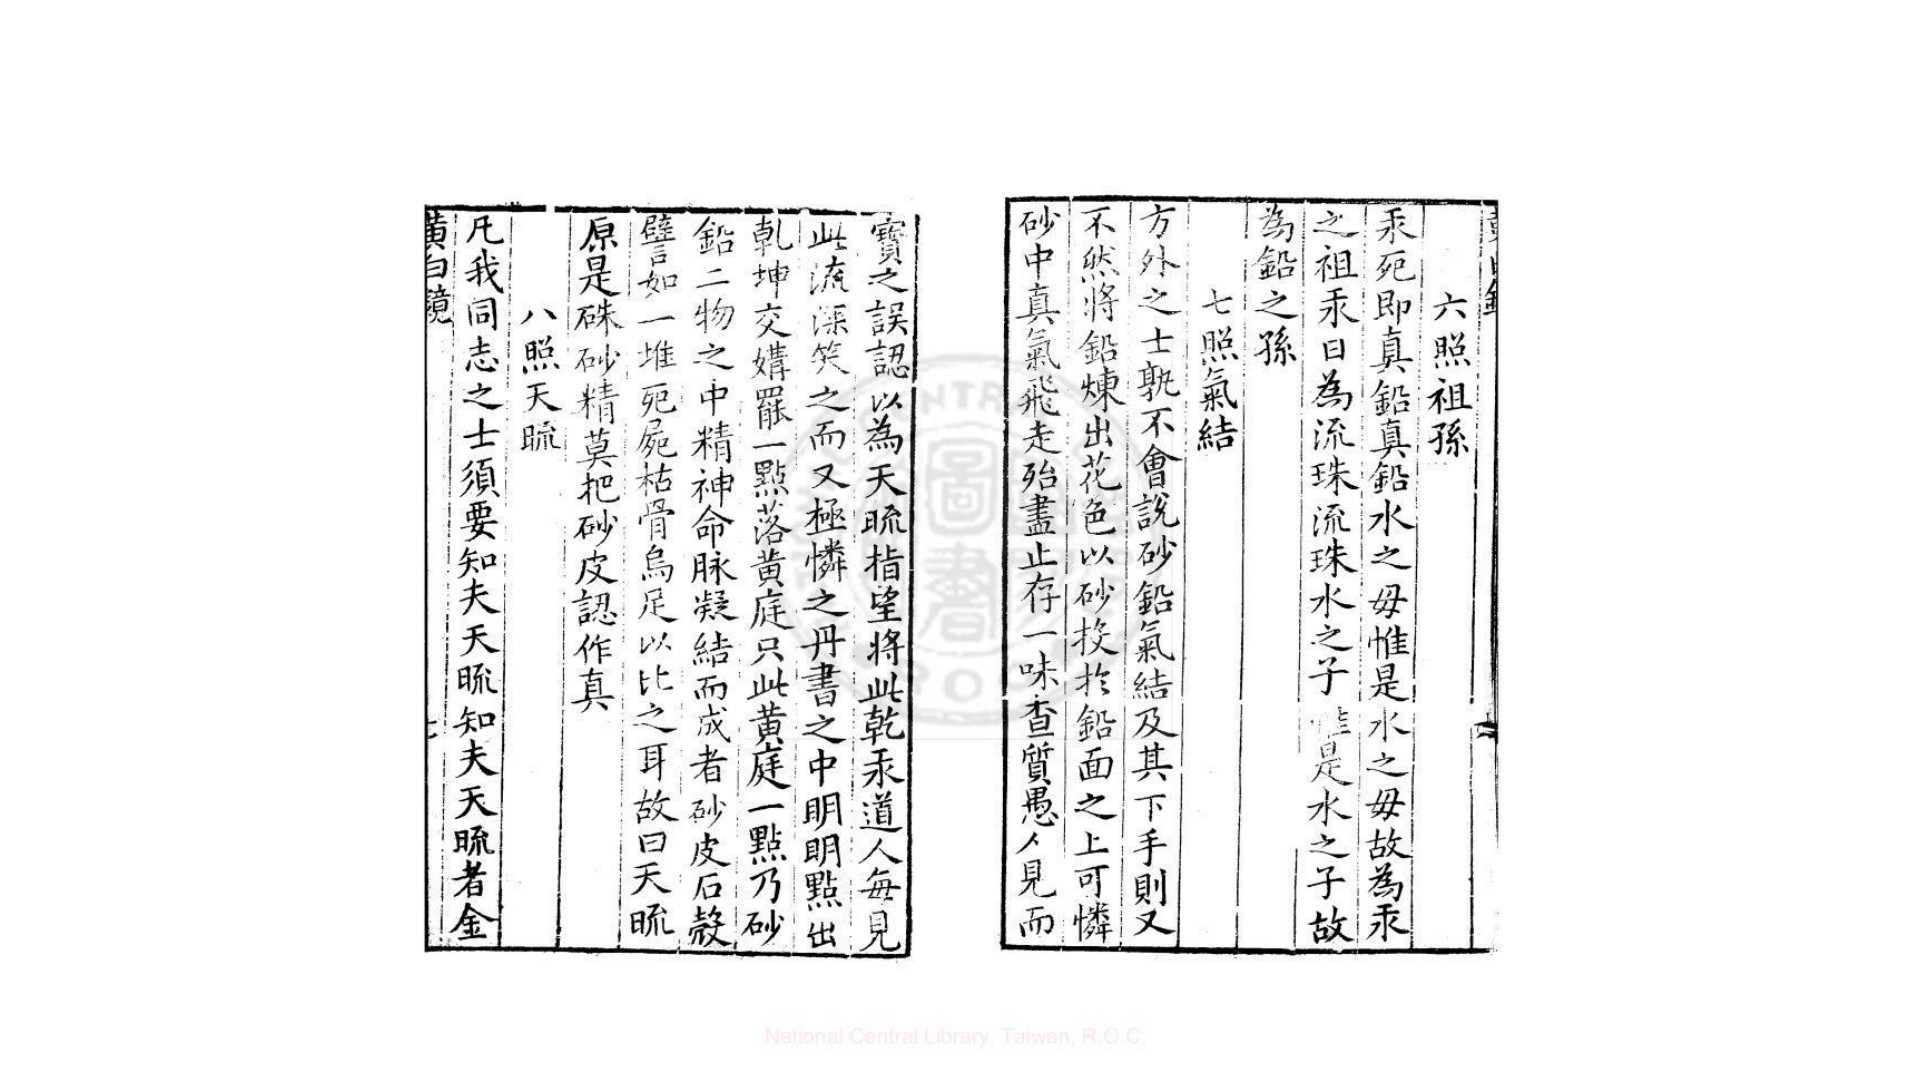 六照祖孫
汞死即真鉛真鉛水之母惟是水之母故為汞
之祖汞日為流珠流珠水之子惟是水之子故
為鉛之孫
七照氣結
方外之士孰不會說砂鉛氣結及其下手則又
不然將鉛煉出花色以砂投於鉛面之上可憐
砂中真氣飛走殆盡止存一味查質愚人見而
寶之誤認以為天硫指望將此乾汞道人每見
此流深笑之而又極憐之丹書之中明明點出
乾坤交媾罷一點落黃庭只此黃庭一點乃砂
鉛二物之中精神命脉凝結而成者砂皮石殼
譬如一堆死屍枯骨烏足以比之耳故曰天硫
原是硃砂精莫把砂皮認作真
八照天硫
凡我同志之士須要知夫天硫知夫天硫者金
黃白鏡
七
National Central Library, Taiwan, R.O.C.